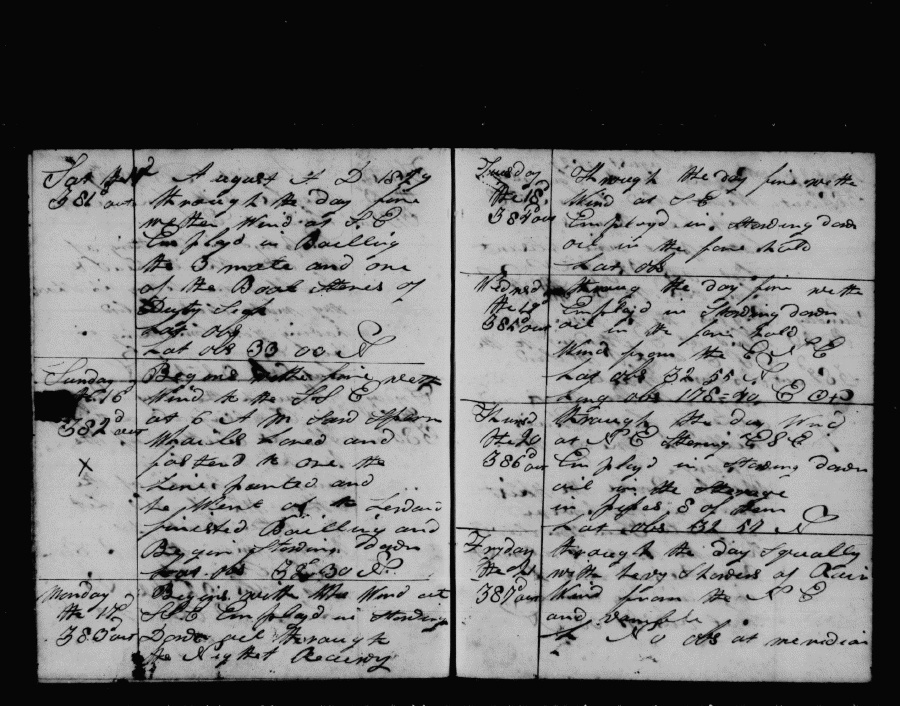 Sat the 15d
381d out
August A D 1849
through the day fine
wether Wind at S. E
Employd in Bailling
the 3 mate and one
of the Boat Steres of
Duty Sick
Lat obs 33 00 N
Sunday
the 16
382d out
X
Begins with fine weth
Wind to the S S E
at 6 A M Sard Sperm
Whails Lored and
fastend to one the
Line parted and
he Went of to Leward
finested Bailling and
Begun Stowing Down
Lat obs 32 30 N
Monday
the 17d
383d out
Begins with the Wind at
SSE Employd in Stowing
Down oil through
the Night Rainy
Tuesday
the 18d
384d out
Through the day fine weth
Wind at S E
Employd in Stowing down
oil in the fore hold
Lat obs
Wednsd
the 19d
385d out
through the day fine weth
Employd in Stowing down
oil in the fore hold
Wind from the E N E
Lat obs 32 55 N
Long obs 178= E
Thursd
the 20
386d out
through the day Wind
at N E Stering E S E
Employd in Stowing down
oil in the Sterage
in pipes 8 of them
Lat obs 32 57 N
Fryday
the 21
387d out
through the day Squally
with hevy Showers of Rain
Wind from the N E
and
No obs at meridian